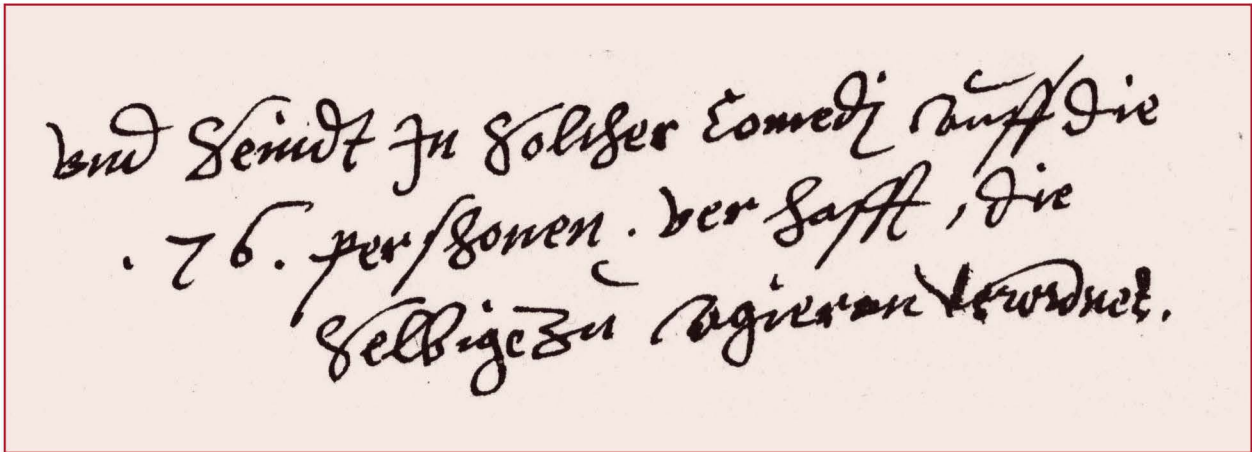 vnd Seindt In Solcher Comedj auff die
. 76. pershonen . ver hafft , die
Selbige zu agieren verordnet.